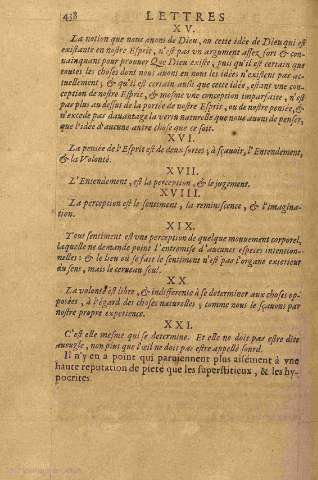 438 LETTRES
XV.
La notion que nous auons de Dieu, ou cette idée de Dieu qui est
existante en nostre Esprit, n'est pas vn argument assez fort & con-
uainquant pour prouuer Que Dieu existe, puis qu'il est certain que
toutes les choses dont nous auons en nous les idées n'existent pas ac-
tuellement; & qu'il est certain aussi que cette idée, estant vne con-
ception de nostre Esprit, & mesme vne conception imparfaite, n'est
pas plus au dessus de la portée de nostre Esprit, ou de nostre pensée, &
n'excede pas dauantage la vertu naturelle que nous auons de penser,
que l'idée d'aucune autre chose que ce soit.
XVI.
La pensée de l'Esprit est de deux sortes; à sçauoir, l'Entendement,
& la Volonté.
XVII.
L'Entendement, est la perception, & le jugement.
XVIII.
La perception est le sentiment, la reminiscence, & l'imagina-
tion.
XIX.
Tout sentiment est vne perception de quelque mouuement corporel,
laquelle ne demande point l'entremise d'aucunes especes intention-
nelles: & le lieu où se fait le sentiment n'est pas l'organe exterieur
du sens, mais le cerueau seul.
XX.
La volonté est libre, & indifferente à se determiner aux choses op-
posées, à l'égard des choses naturelles; comme nous le sçauons par
nostre propre experience.
XXI.
C'est elle mesme qui se determine. Et elle ne doit pas estre dite
aueugle, non plus que l'œil ne doit pas estre appellé sourd.
Il n'y en a point qui paruiennent plus aisément à vne
haute reputation de pieté que les superstitieux, & les hy-
pocrites.